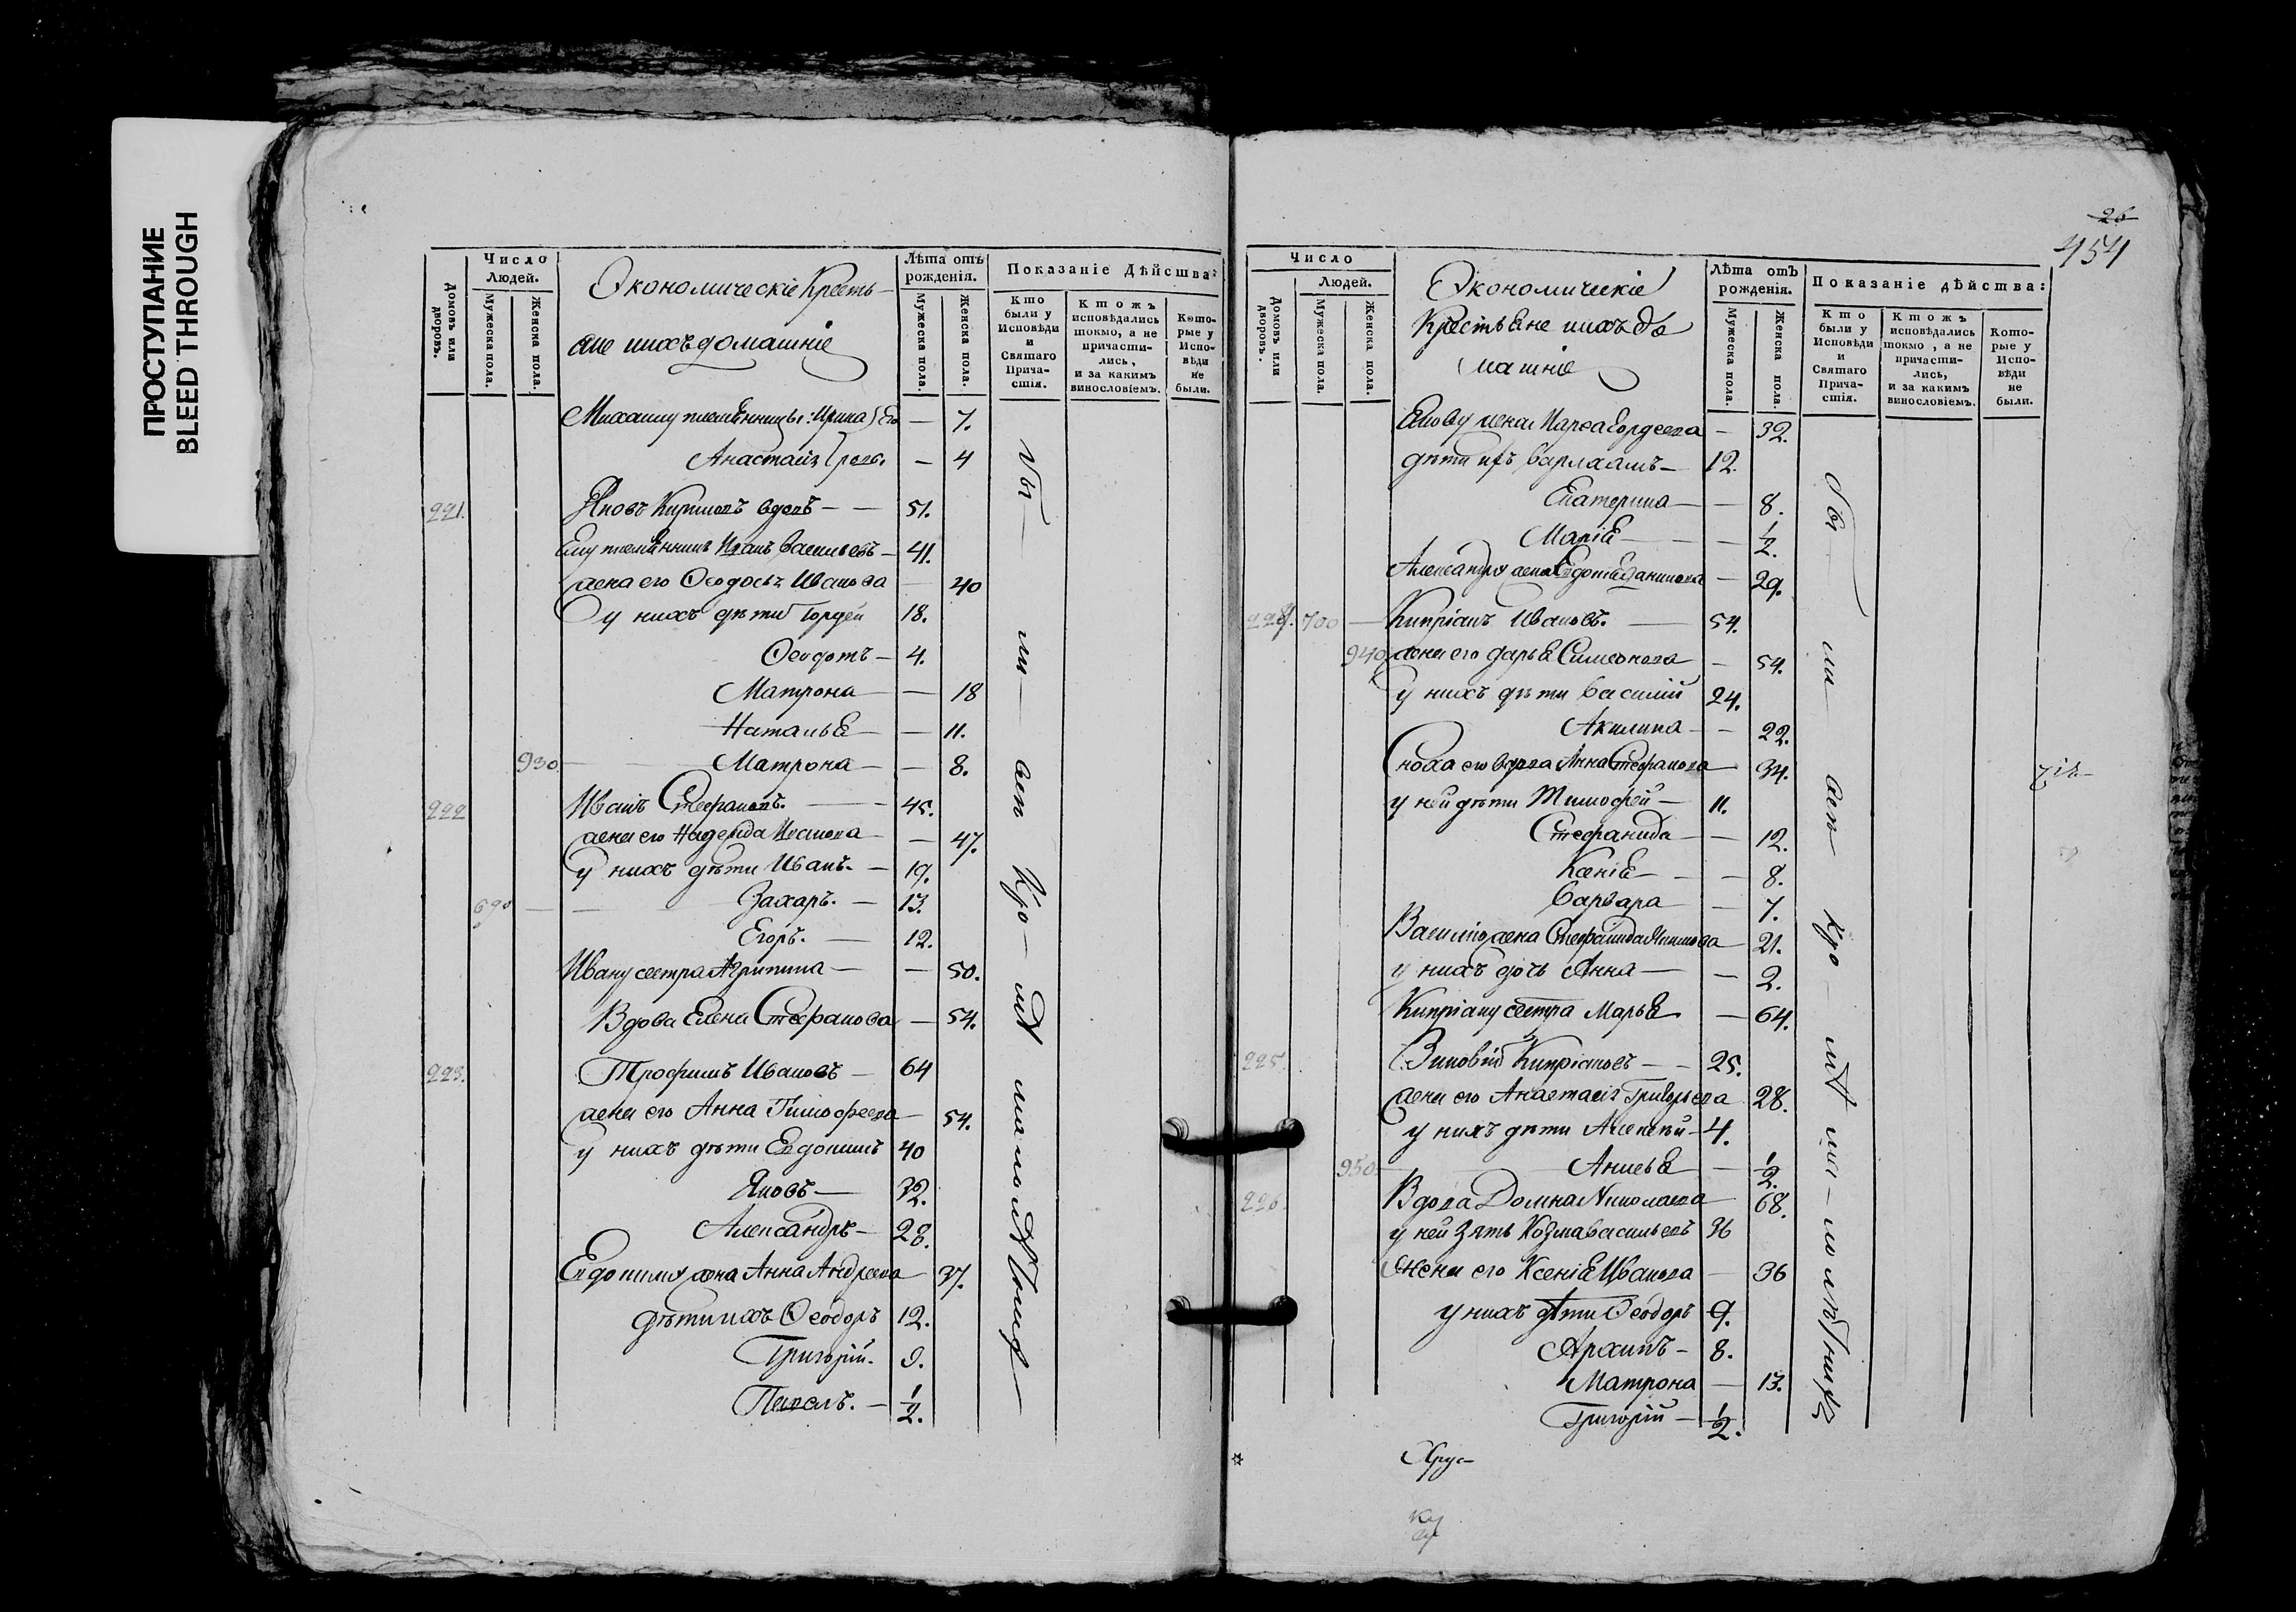 ПРОСТУПАНИЕ
BLEED THROUGH
Число
Людей.
Домовъ или дворовъ.
Мужеска пола.
Женска пола.
Экономическіе Кресть-
яне ихъ домашніе
Лѣта отъ рожденія.
Мужеска пола.
Женска пола.
Показаніе Дѣйства:
Кто были у Исповѣди и Святаго Прича-стія.
Ктожъ исповѣдались токмо, а не причасти-лись, и за какимъ винословіемъ.
Кото-рые у Испо-вѣди не были.
Михаилу племянницы: Ирина — 7.
Анастасія — 4
221. Яковъ Кириловъ вдовъ — 51.
Ему племянникъ Иванъ Васильевъ — 41.
жена его Ѳеодосья Иванова — 40
у нихъ дѣти Гордей 18.
Ѳеодотъ — 4.
Матрона — 18
Наталья — 11.
930. Матрона — 8.
222 Иванъ Стефановъ. — 45.
жена его Надежда Иванова — 47.
у нихъ дѣти Иванъ. — 19.
690 Захаръ. — 13.
Егоръ. — 12.
Ивану сестра Агрипина — 50.
Вдова Елена Стефанова — 54.
223. Трофимъ Ивановъ — 64
жена его Анна Тимофеева — 54.
у нихъ дѣти Евдокимъ 40
Яковъ — 32.
Александръ — 28.
Евдокиму жена Анна Андреева — 37.
дѣти ихъ Ѳеодоръ 12.
Григорій. 9.
Павелъ. — 1/2.
бы — ли — всѣ кро — мѣ малолѣтнихъ —
26
454
Число
Людей.
Домовъ или дворовъ.
Мужеска пола.
Женска пола.
Экономическіе
Крестьяне ихъ до
машніе
Лѣта отъ рожденія.
Мужеска пола.
Женска пола.
Показаніе дѣйства:
Кто были у Исповѣди и Святаго Прича-стія.
Ктожъ исповѣдались токмо, а не причасти-лись, и за какимъ винословіемъ.
Кото-рые у Испо-вѣди не были.
Якову жена Марѳа Гордеева — 32.
дѣти ихъ Варлаамъ — 12.
Екатерина — 8.
Марія — 1/2.
Александру жена Евдокія — 29.
224. 700 — Кипріанъ Ивановъ. — 54.
940 жена его Дарья Симеонова — 54.
у нихъ дѣти Василій 24.
Акилина — 22.
Сноха его вдова Анна Стефанова 34.
у ней дѣти Тимофей — 11.
Стефанида — 12.
Ксенія — 8.
Варвара — 7.
Василію жена Стефанида 21.
у нихъ дочь Анна — 2.
Кипріану сестра Марья — 64.
225. Зиновій Кипріановъ — 25.
жена его Анастасія Григорьева 28.
у нихъ дѣти Алексѣй — 4.
950 Анисья — 1/2.
226 Вдова Домна Николаева 68.
у ней зять Козма Васильевъ 36
Жена его Ксенія Иванова — 36
у нихъ дѣти Ѳеодоръ 9.
Архипъ — 8.
Матрона — 13.
Григорій — 1/2.
бы — ли всѣ кро — мѣ ма — лолѣтнихъ